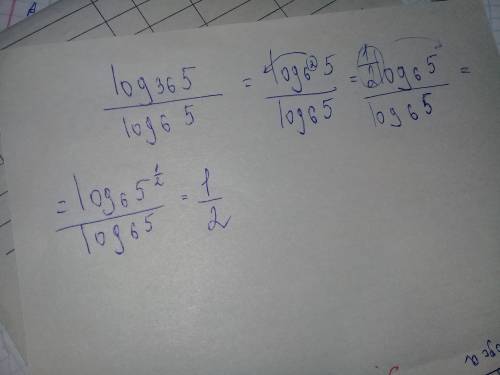 log₃₆5 / log₆5 = log₆²5 / log₆5 = 1/2 log₆5 / log₆5 =
= log₆5^(1/2) / log₆5 = 1/2